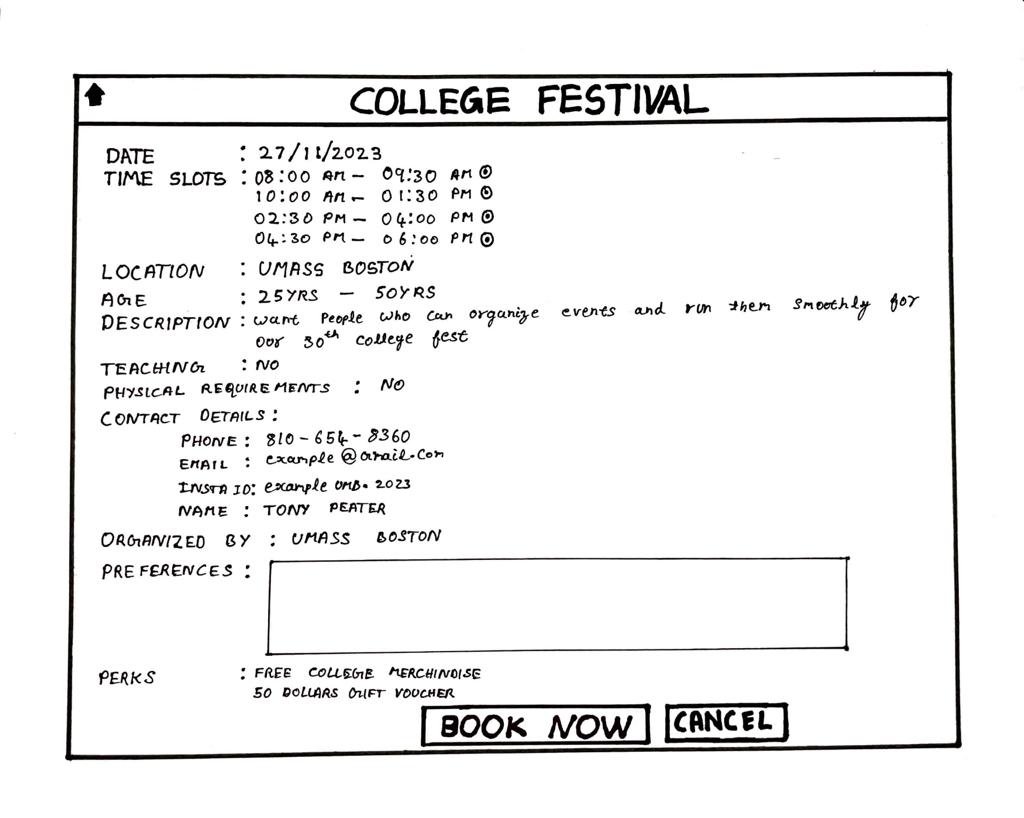 COLLEGE FESTIVAL
DATE : 27/11/2023
TIME SLOTS : 08:00 AM - 09:30 AM
10:00 AM - 01:30 PM
02:30 PM - 04:00 PM
04:30 PM - 06:00 PM
LOCATION : UMASS BOSTON
AGE : 25YRS - 50YRS
DESCRIPTION : want people who can organize events and run them smoothly for
our 30th college fest
TEACHING : NO
PHYSICAL REQUIREMENTS : NO
CONTACT DETAILS :
PHONE : 810-654-8360
EMAIL : example@gmail.com
INSTA ID: example UMB. 2023
NAME : TONY PEATER
ORGANIZED BY : UMASS BOSTON
PREFERENCES :
PERKS : FREE COLLEGE MERCHINDISE
50 DOLLARS GIFT VOUCHER
BOOK NOW CANCEL